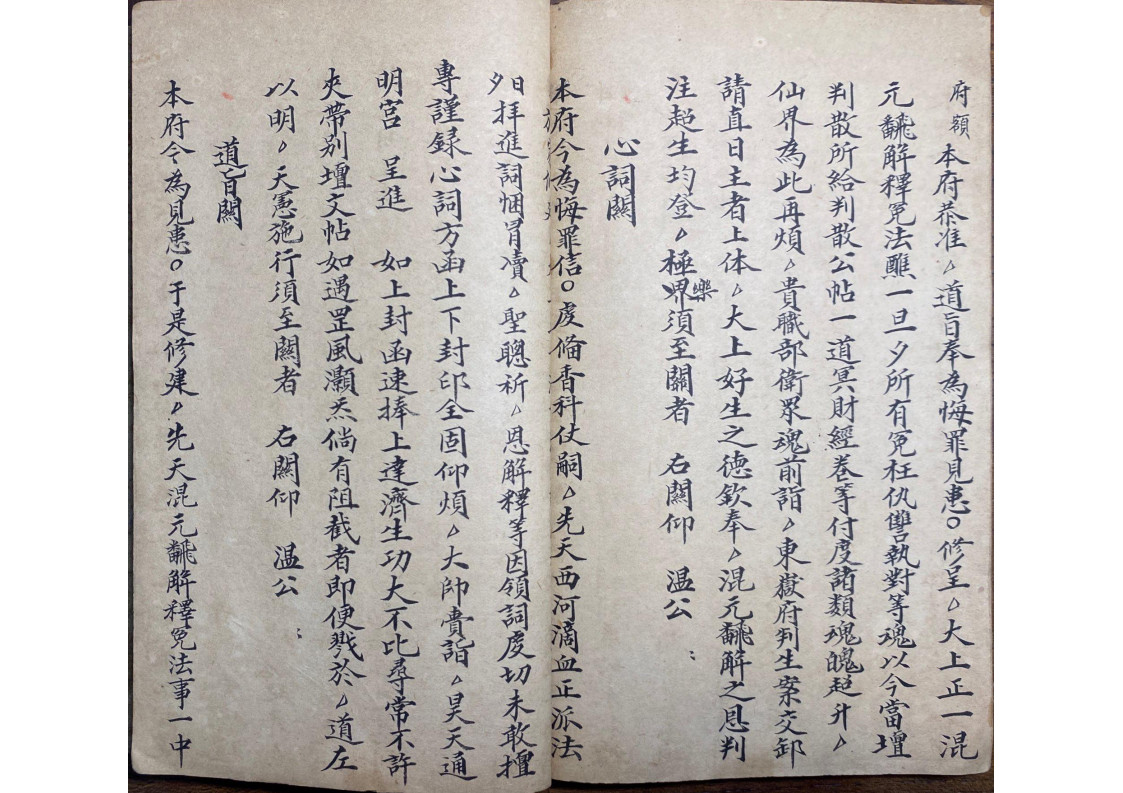 府領 本府恭准〻道旨奉為悔罪見患○修呈〻大上正一混
元飜解釋冤法醮一旦夕所有冤枉仇讐執對等魂以今當壇
判散所給判散公帖一道冥財經卷等付度諸類魂魄起升〻
仙界為此再煩〻貴職部衛眾魂前詣〻東嶽府判生案交卸
請直日主者上体〻大上好生之德欽奉〻混元飜解之恩判
注起生均登〻極樂界須至關者 右關仰 溫公
心詞關
本府今為悔罪信○虔備香科仗嗣〻先天西河滴血正派法
日夕拜進詞悃冒瀆〻聖聰祈〻恩解釋等因領詞虔切未敢擅
專謹録心詞方函上下封印全固仰煩〻大帥賫詣〻昊天通
明宮 呈進 如上封函速捧上達濟生功大不比尋常不許
夾帶別壇文帖如遇罡風灝炁倘有阻截者即便戮於〻道左
以明〻天憲施行須至關者 右關仰 溫公
道旨關
本府今為見患○于是修建〻先天混元飜解釋冤法事一中